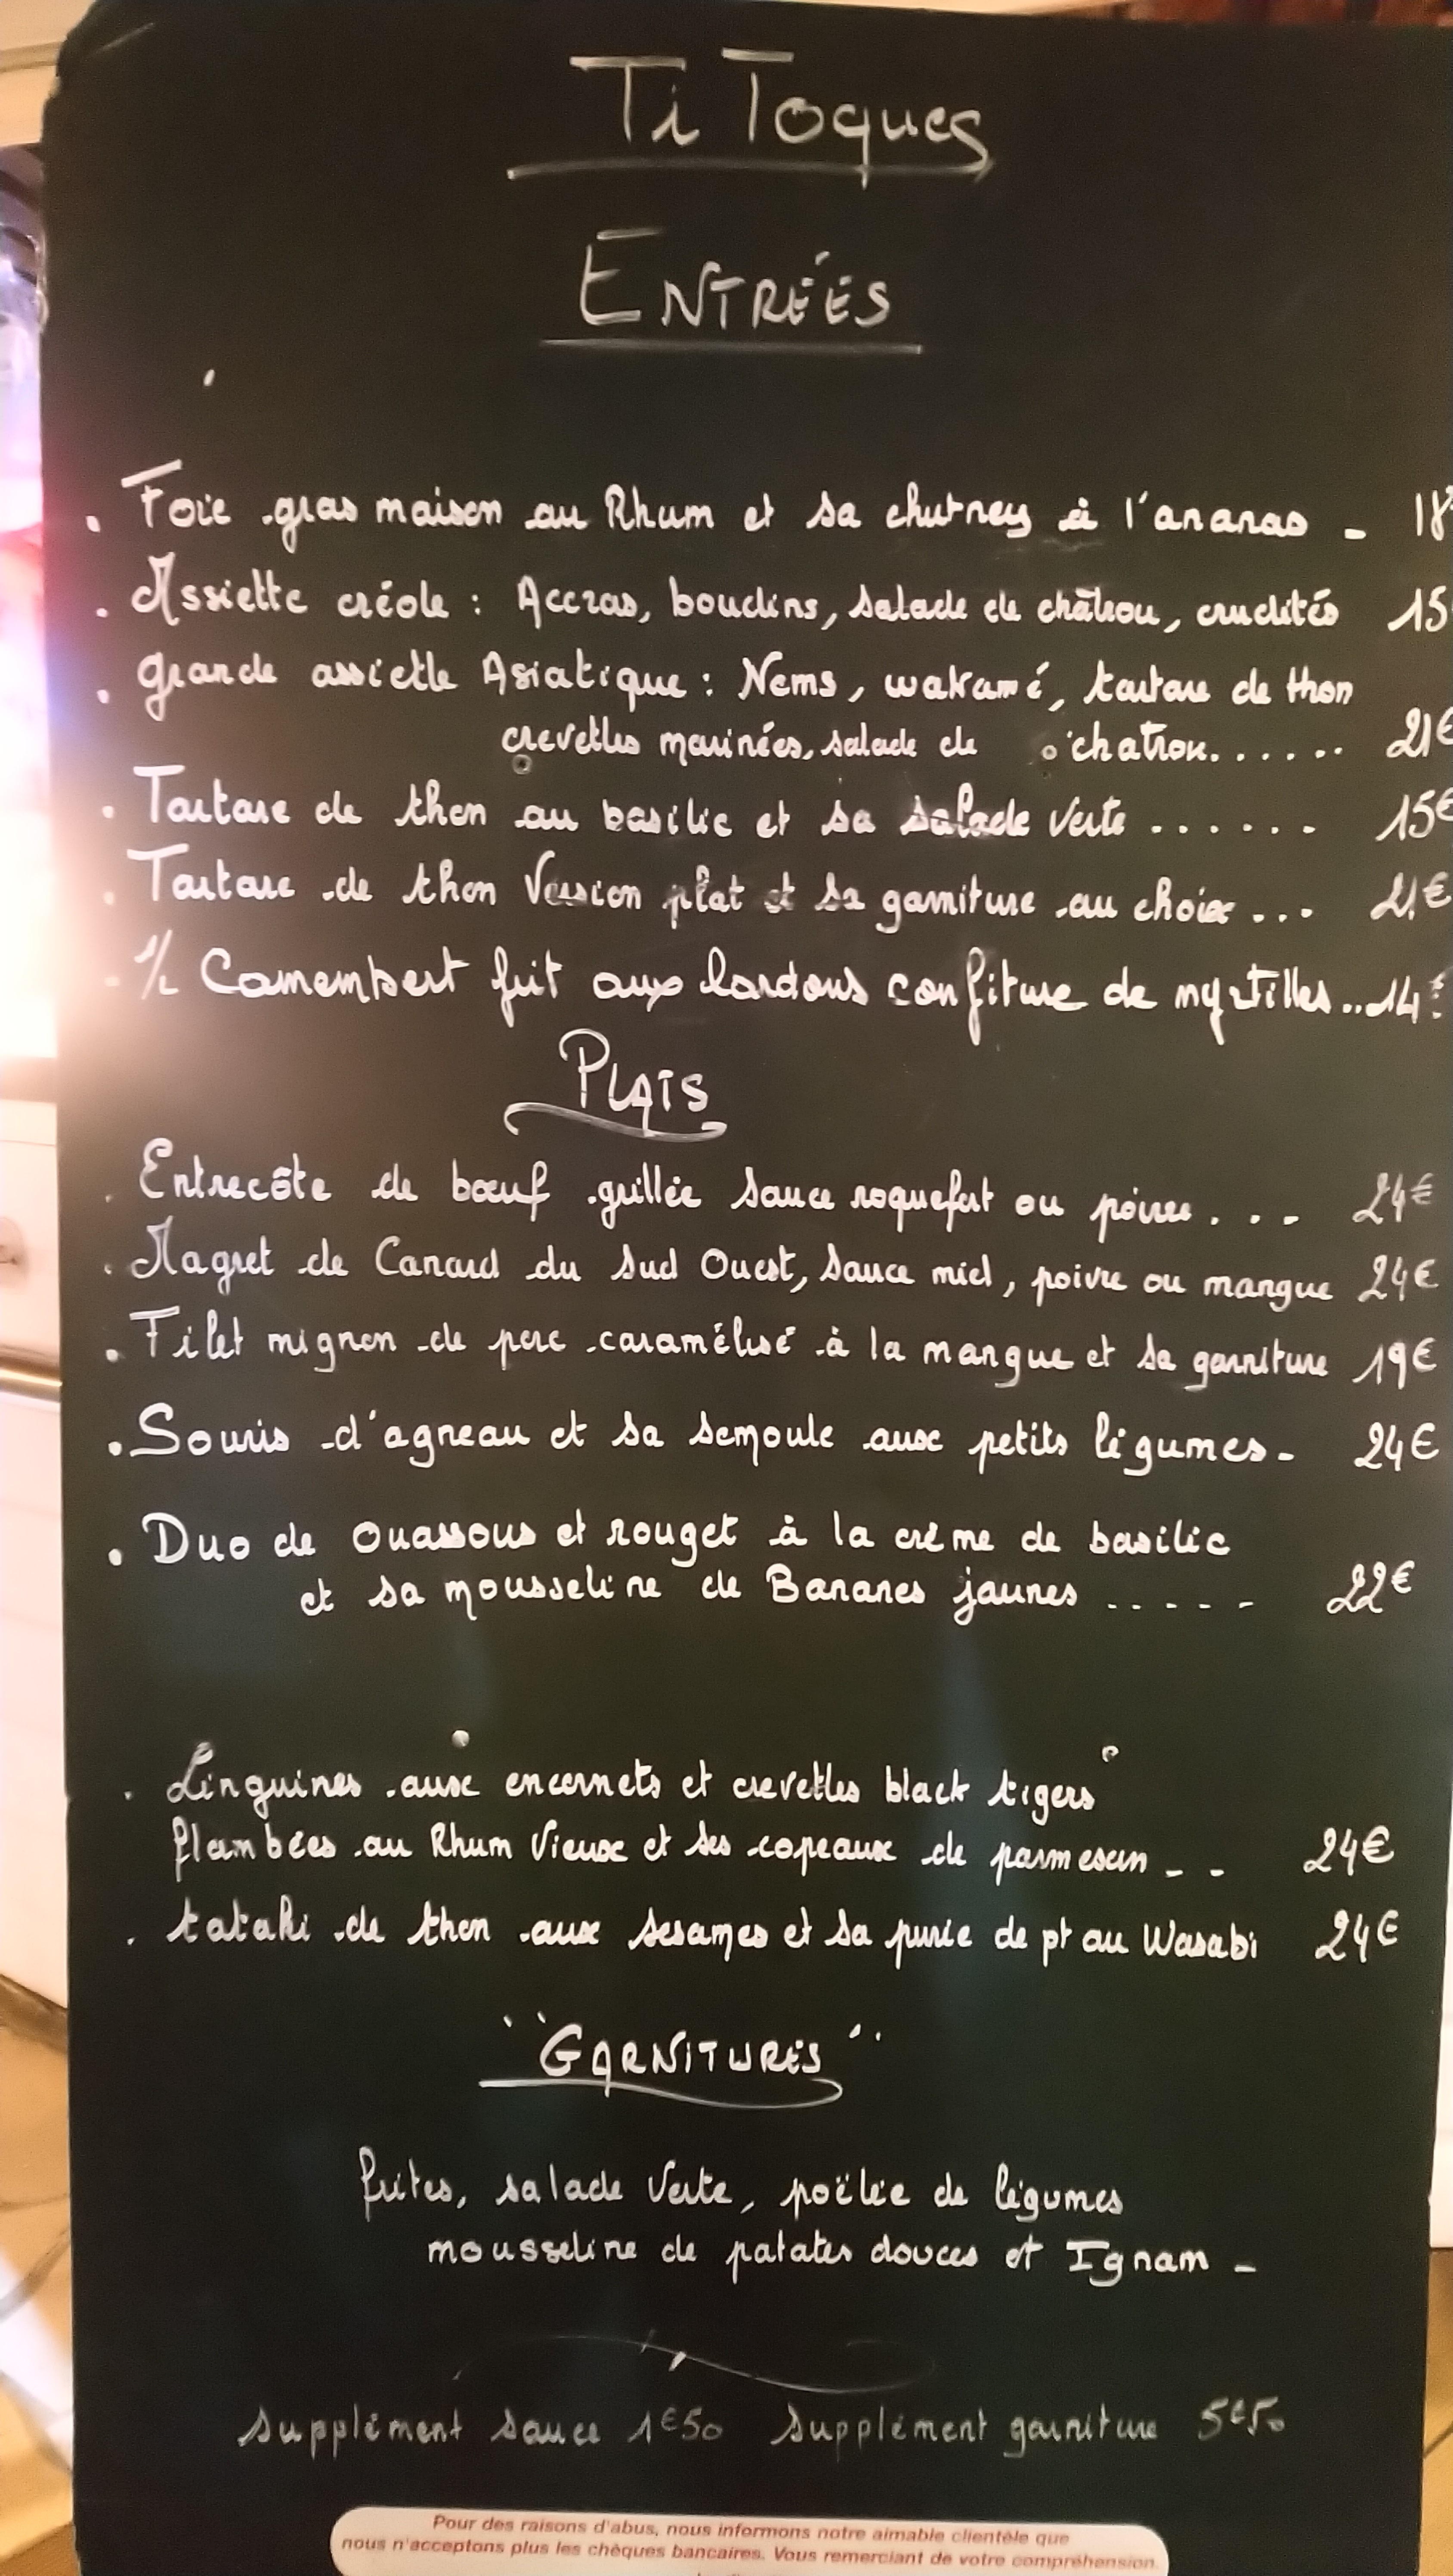 Ti Toques
ENTRÉES
. Foie gras maison au Rhum et sa chutney à l'ananas - 18
. Assiette créole : Accras, boudins, salade de chatrou, crudités 15
. Grande assiette Asiatique : Nems, wakamé, tartare de thon
crevettes marinées, salade de chatrou...... 21€
. Tartare de thon au basilic et sa salade verte ...... 15€
. Tartare de thon Version plat et sa garniture au choix... 21€
- 1/2 Camembert frit aux lardons confiture de myrtilles..14€
PLATS
. Entrecôte de bœuf grillée sauce roquefort ou poivre... 24€
. Magret de Canard du Sud Ouest, sauce miel, poivre ou mangue 24€
. Filet mignon de porc caramélisé à la mangue et sa garniture 19€
. Souris d'agneau et sa semoule aux petits légumes- 24€
. Duo de ouassous et rouget à la crème de basilic
et sa mousseline de Bananes jaunes ..... 22€
. Linguines aux encornets et crevettes black tigers
flambées au Rhum Vieux et ses copeaux de parmesan - - 24€
. tataki de thon aux sesames et sa purée de pt au Wasabi 24€
"GARNITURES"
frites, salade verte, poëlée de légumes
mousseline de patates douces et Ignam -
supplément sauce 1€50 supplément garniture 5€50
Pour des raisons d'abus, nous informons notre aimable clientèle que
nous n'acceptons plus les chèques bancaires. Vous remerciant de votre compréhension.